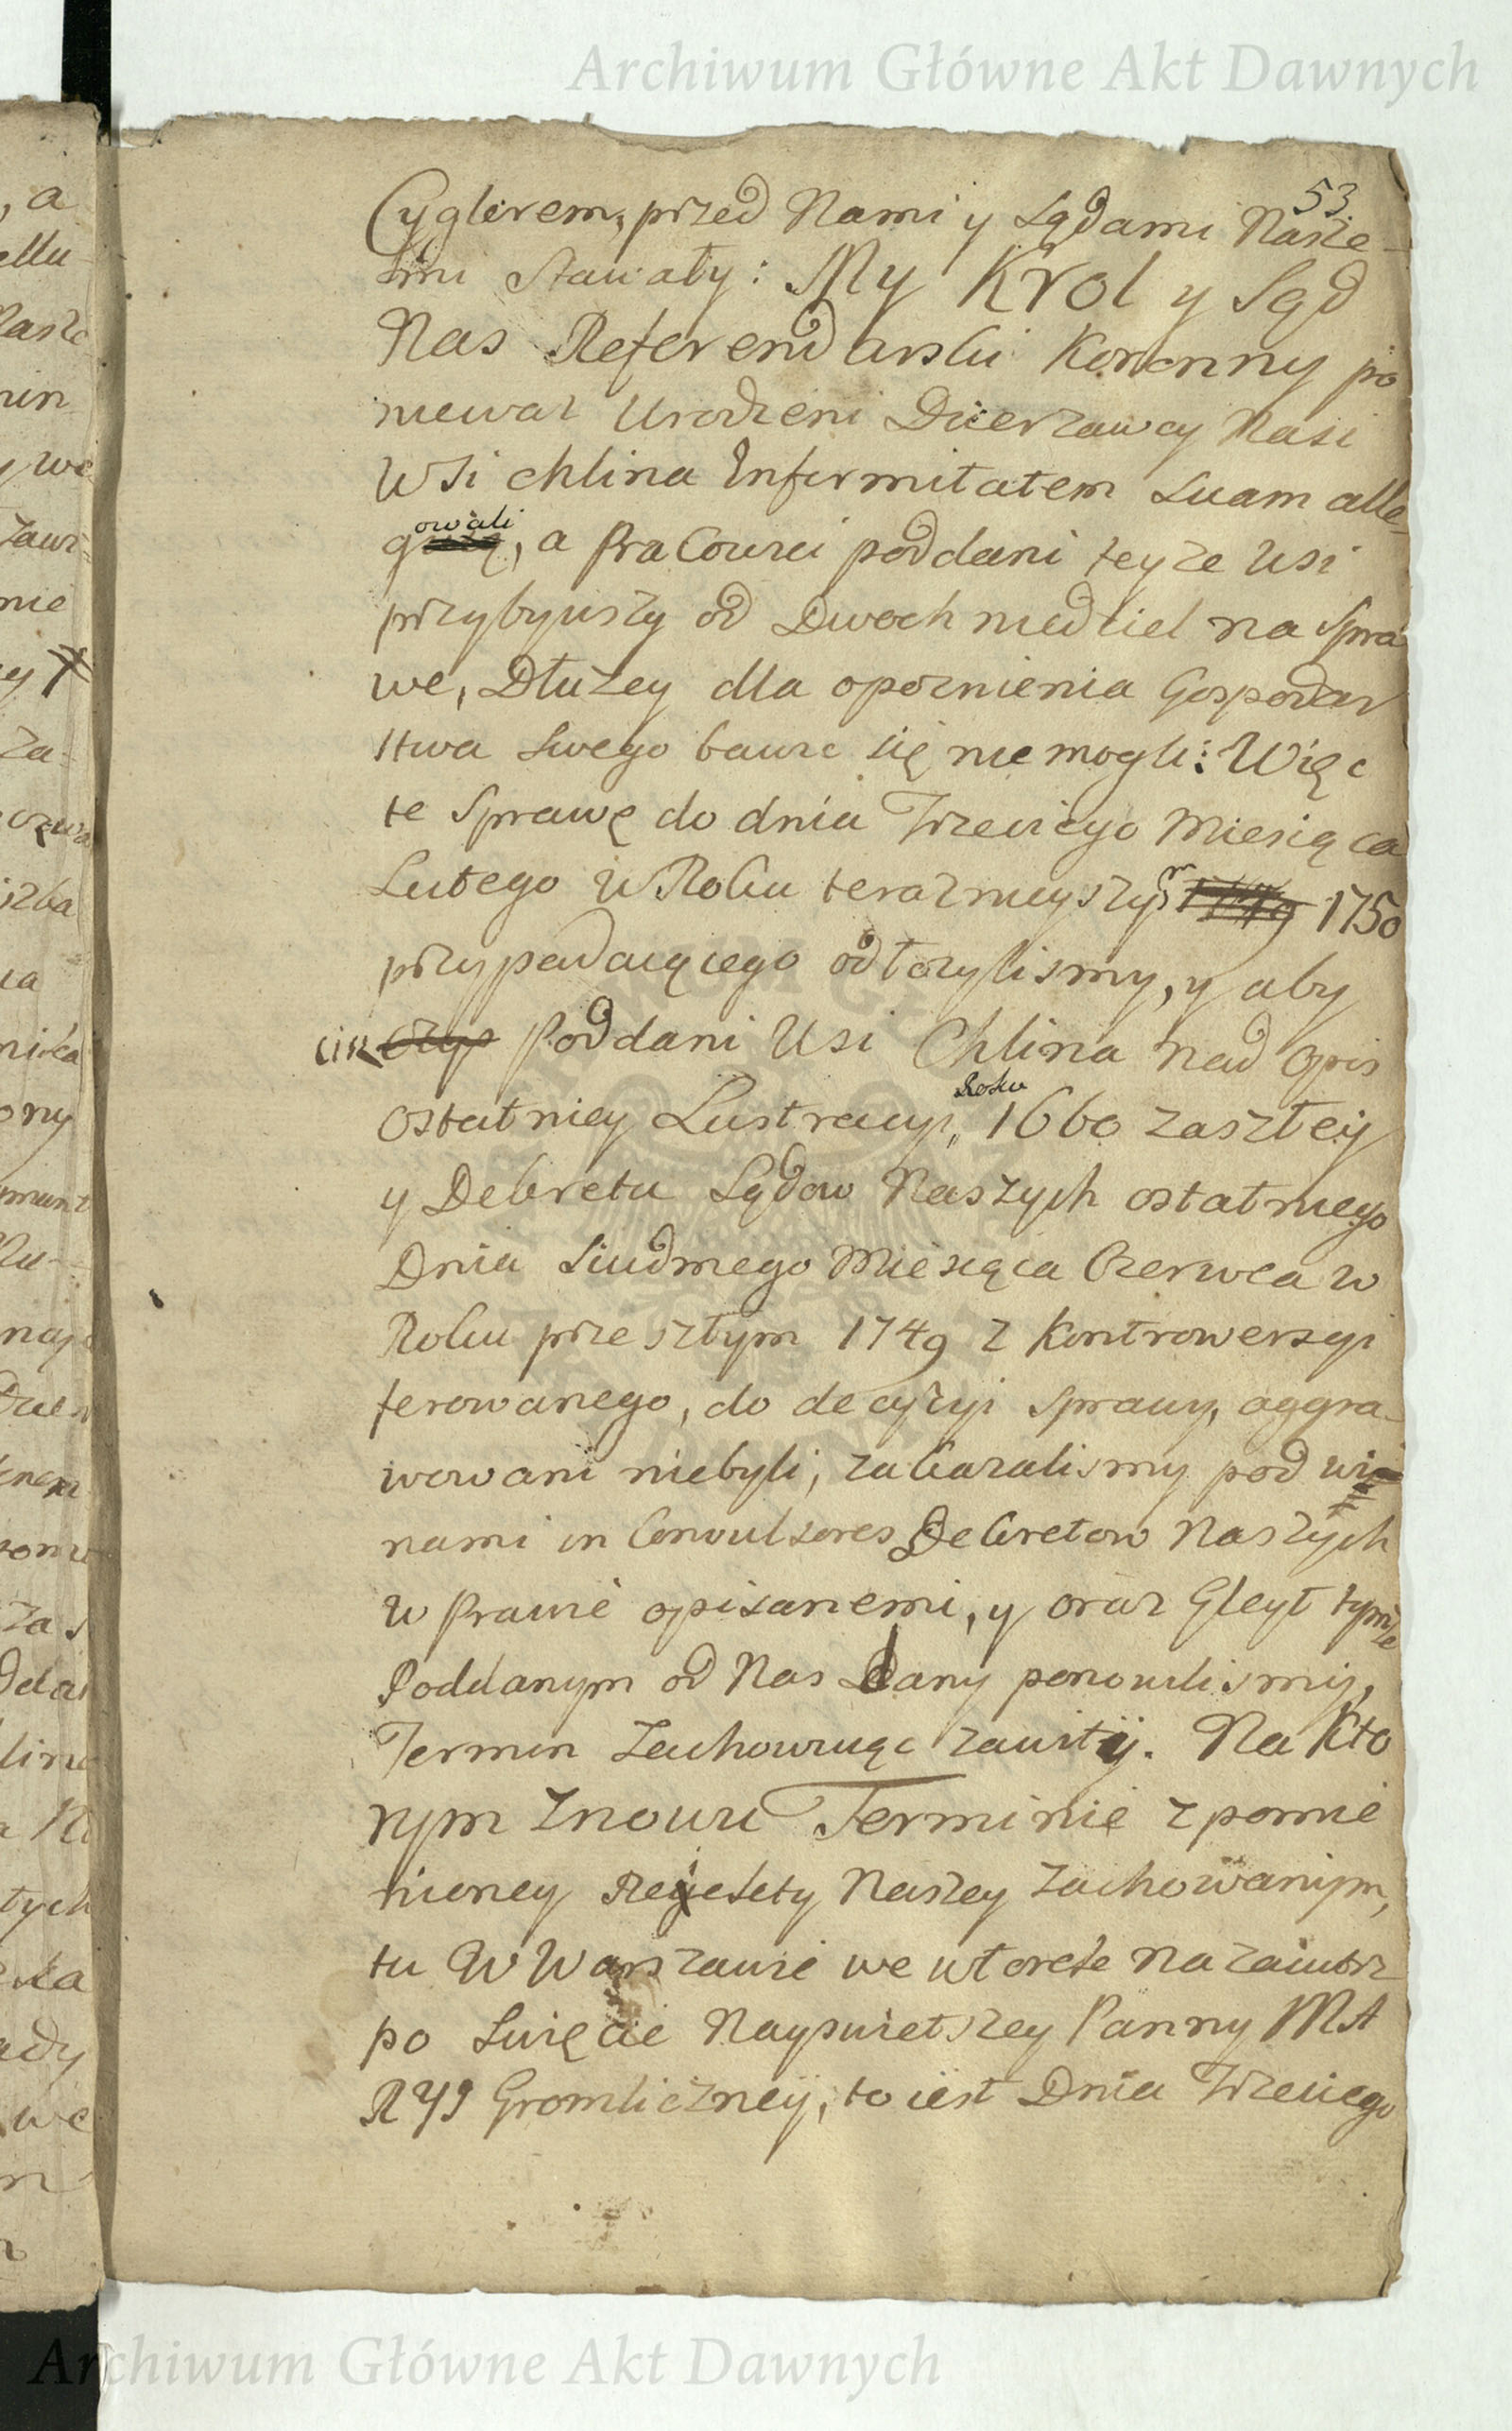 Archiwum Główne Akt Dawnych
53
Cyglerem, przed Nami y Sądami Nasze-
mi stawały: My Krol y Sąd
Nas Referendarski Koronny po
niewaz Urodzeni Dzierzawcy Nasi
Wsi Chlina Infirmitatem Suam alle-
gowali, a Pracowici poddani teyze Wsi
przybywszy od Dwoch niedziel na Spra
we, Dłuzey dla opoznienia Gospodar
stwa Swego bawic się nie mogli: Więc
te Sprawę do dnia Trzeciego Miesiąca
Lutego w Roku teraznieyszym 1750
przypadaiącego odłozylismy, y aby
ciz Poddani Wsi Chlina nad Opis
ostatniey Lustracyi, Roku 1660 zaszłey
y Dekretu Sądow Naszych ostatniego
Dnia Siudmego Miesiąca Czerwca w
Roku przeszłym 1749 z Kontrowersyi
ferowanego, do decyzyi Sprawy, aggra-
wowani niebyli, zakazalismy pod wi
nami in Convulsores Dekretow Naszych
w Prawie opisanemi, y oraz Gleyt tymze
Poddanym od Nas Dany ponowilismy,
Termin Zachowuiąc zawity. Na Kto
rym Znowu Terminie z pomie
nioney Rejesety Naszey zachowanym,
tu w Warszawie we wtorek Nazaiutrz
po Swięcie Nayswietszey Panny MA
RYI Gromliczney, to iest Dnia Trzeciego
Archiwum Główne Akt Dawnych